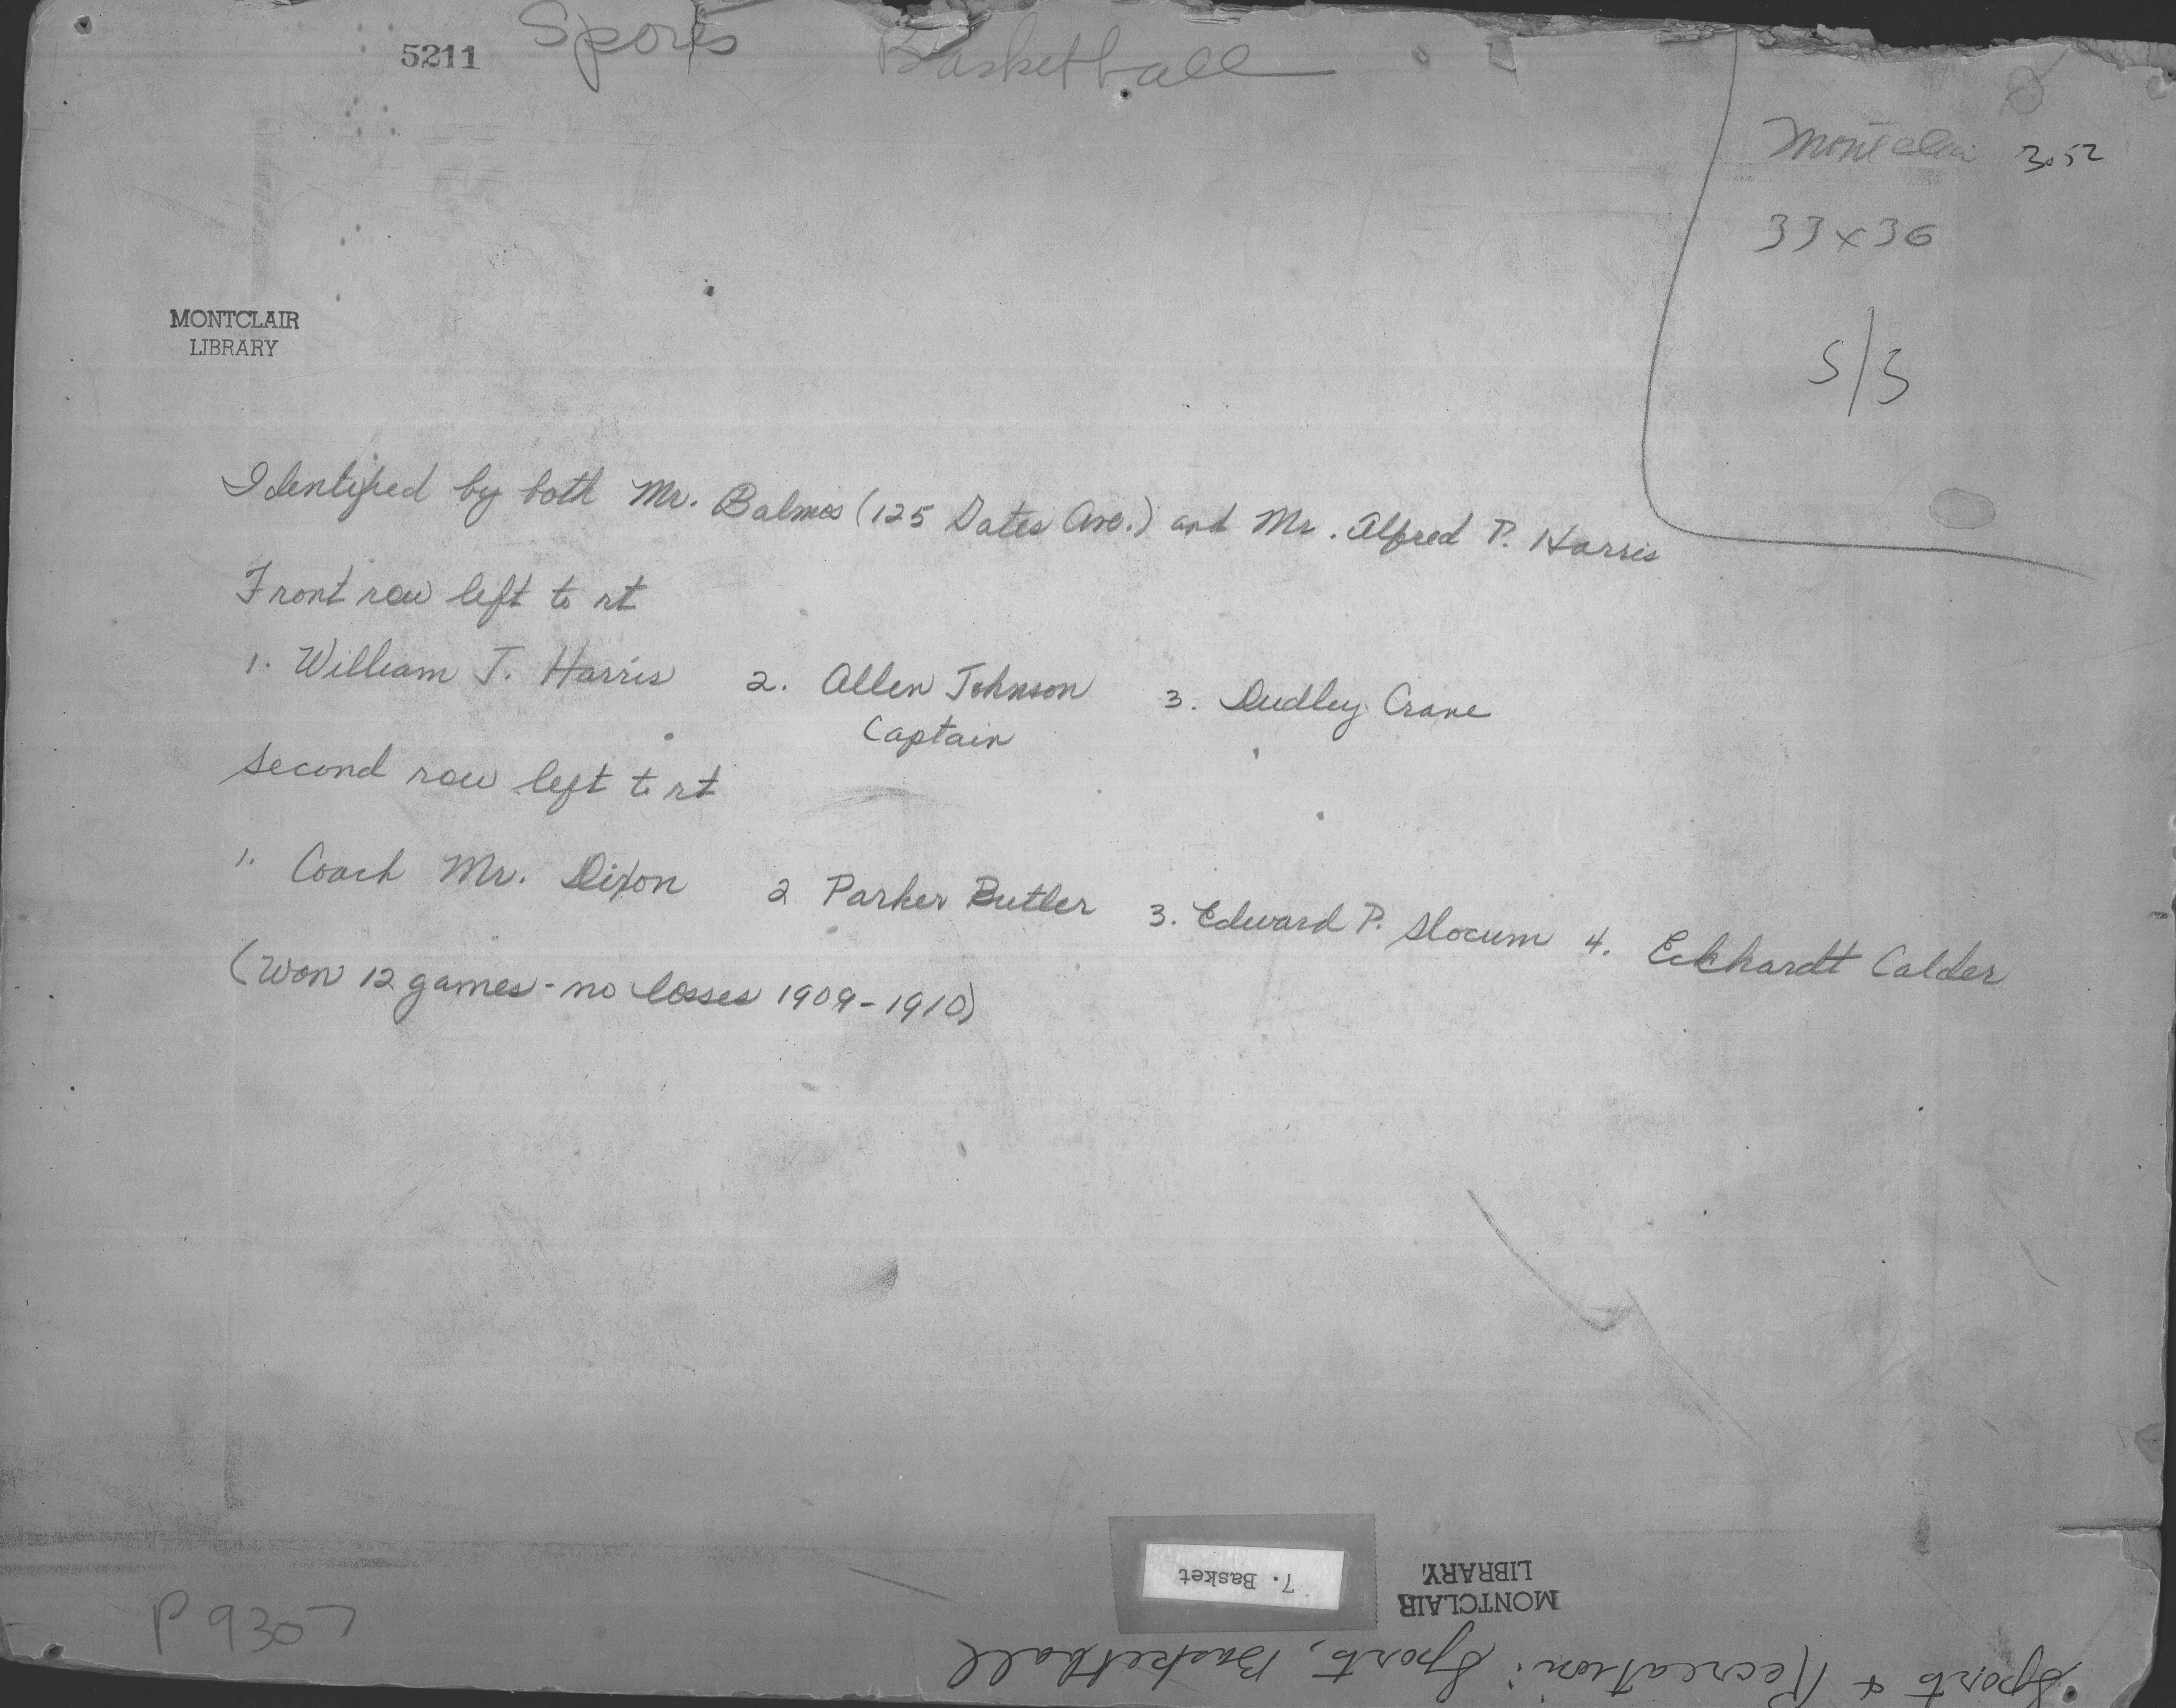 5211 Sports Basketball
Montclair 3.52
33x36
S/S
MONTCLAIR
LIBRARY
Identified by both Mr. Balmos (125 Gates Ave.) and Mr. Alfred P. Harris
Front row left to rt
1. William T. Harris 2. Allen Johnson 3. Dudley Crane
Captain
Second row left to rt
1. Coach Mr. Dixon 2 Parker Butler 3. Edward P. Slocum 4. Eckhardt Calder
(Won 12 games - no losses 1909-1910)
P 9307
7. Basket
MONTCLAIR
LIBRARY.
Sports & Recreation: Sports, Basketball